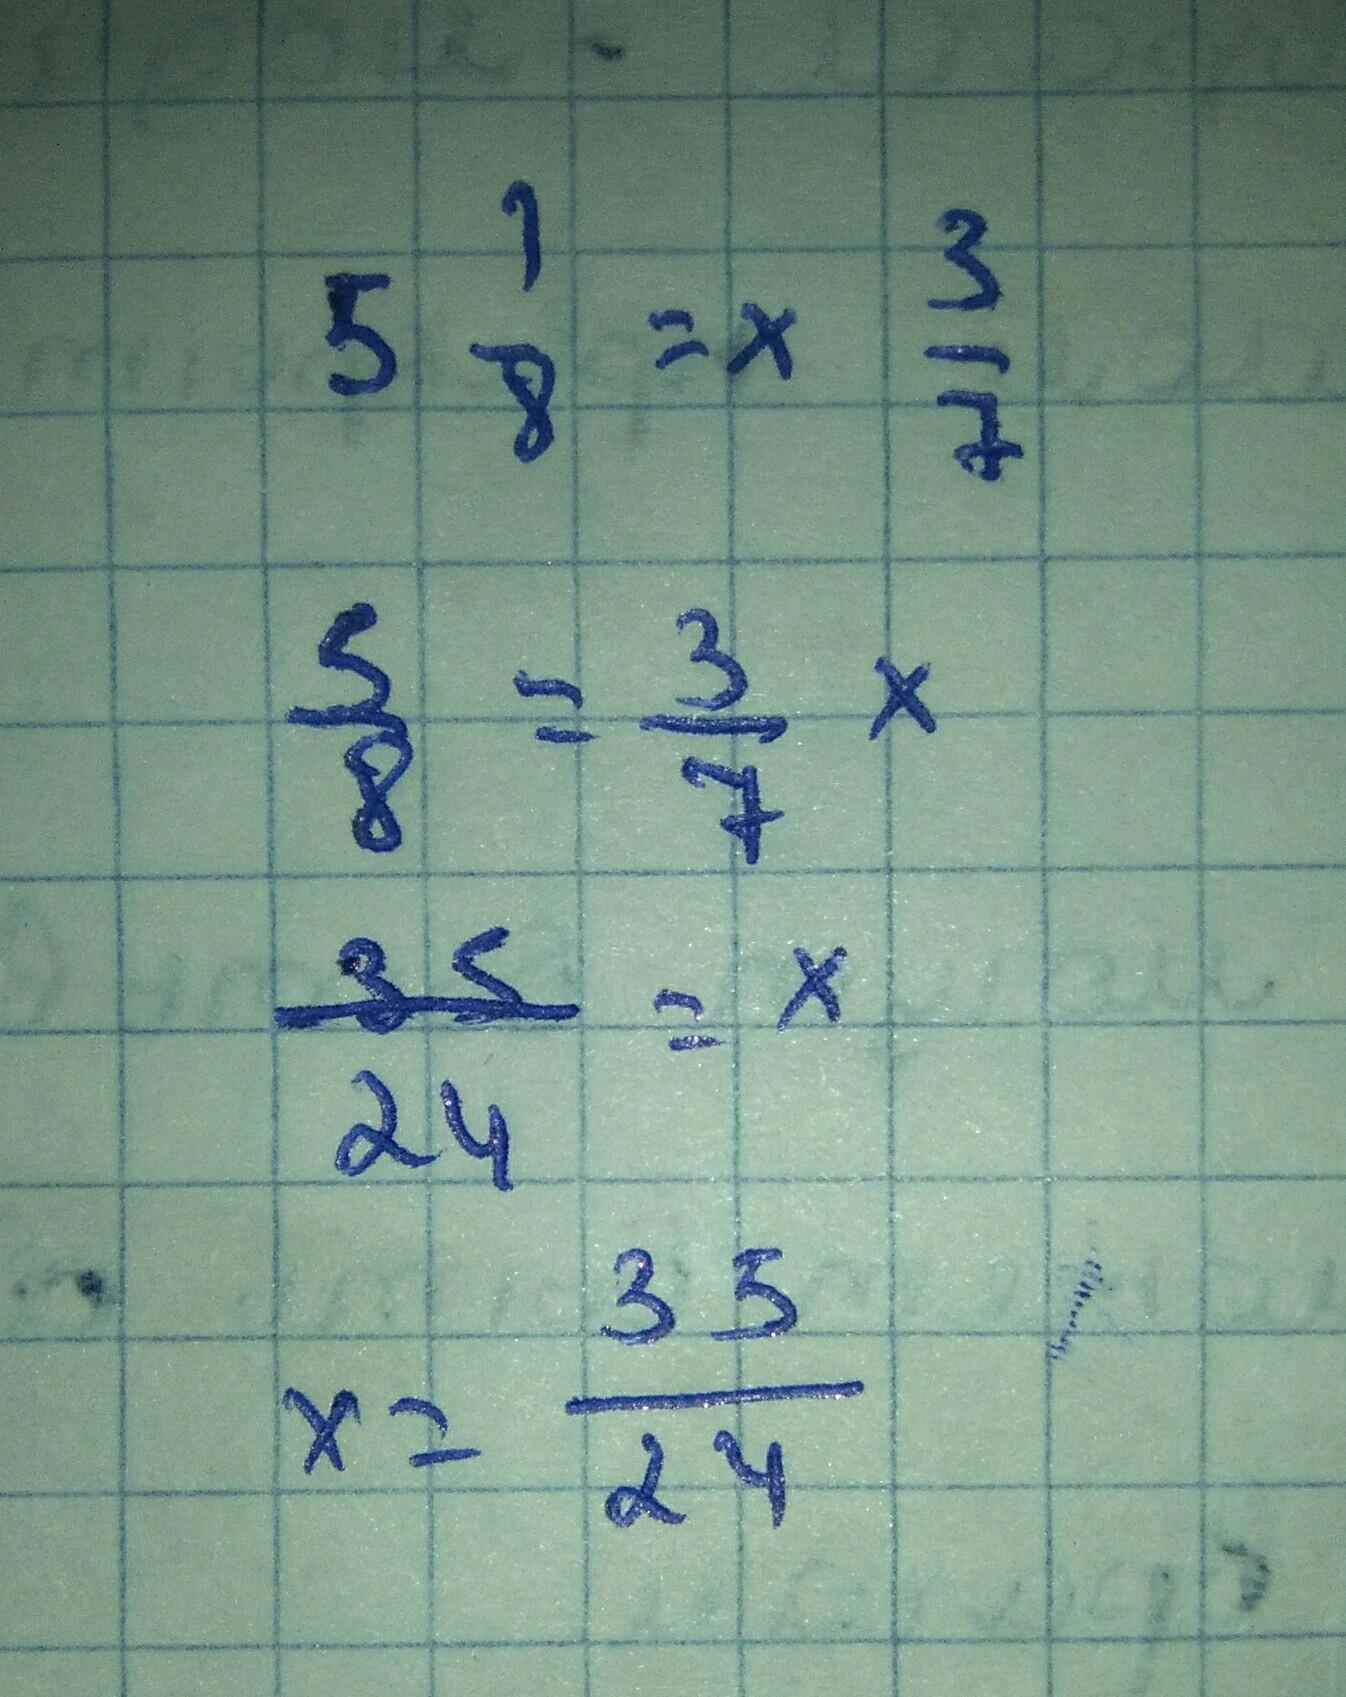 5 1/8 = x 3/7
5/8 = 3/7 x
35/24 = x
x = 35/24